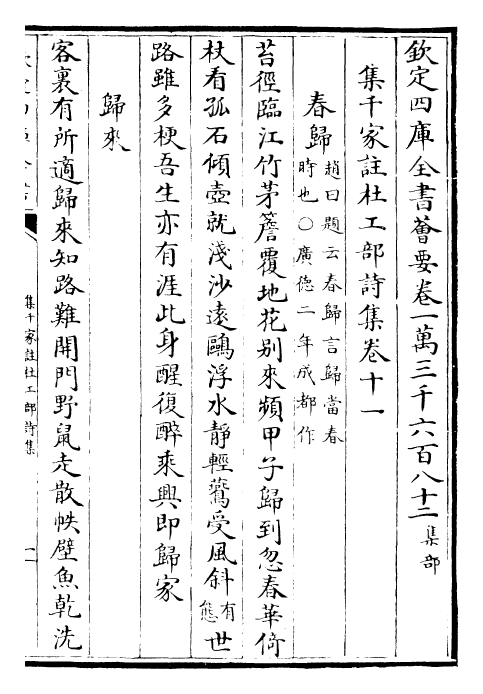 欽定四庫全書薈要卷一萬三千六百八十二集部
集千家註杜工部詩集卷十一
春歸趙曰題云春歸言歸當春時也○廣德二年成都作
苔徑臨江竹茅簷覆地花别來頻甲子歸到忽春華倚
杖看孤石傾壺就淺沙遠鷗浮水靜輕鷰受風斜有態世
路雖多梗吾生亦有涯此身醒復醉乘興即歸家
歸來
客裏有所適歸來知路難開門野鼠走散帙壁魚乾洗
集千家註杜工部詩集
一